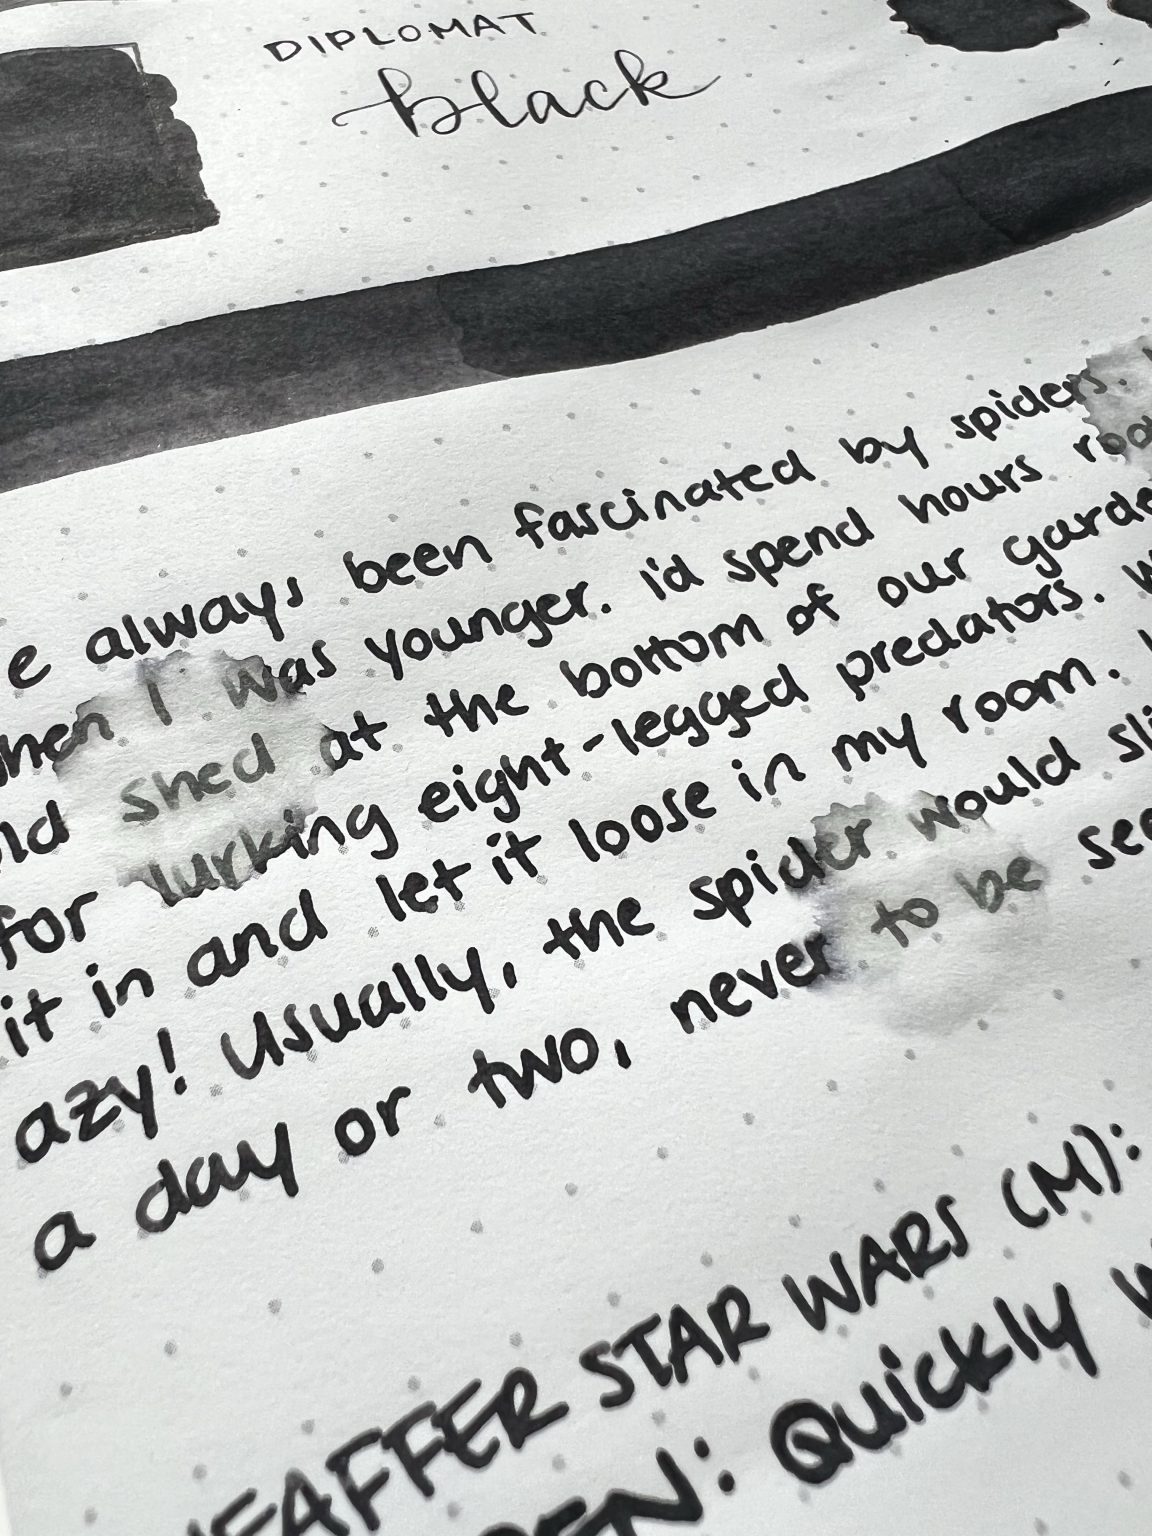 DIPLOMAT
black
e always been fascinated by spiders.
hen I was younger. I'd spend hours roo
ld shed at the bottom of our garde
for lurking eight-legged predators. W
it in and let it loose in my room.
azy! Usually, the spider would sli
a day or two, never to be see
EAFFER STAR WARS (M):
EN: Quickly